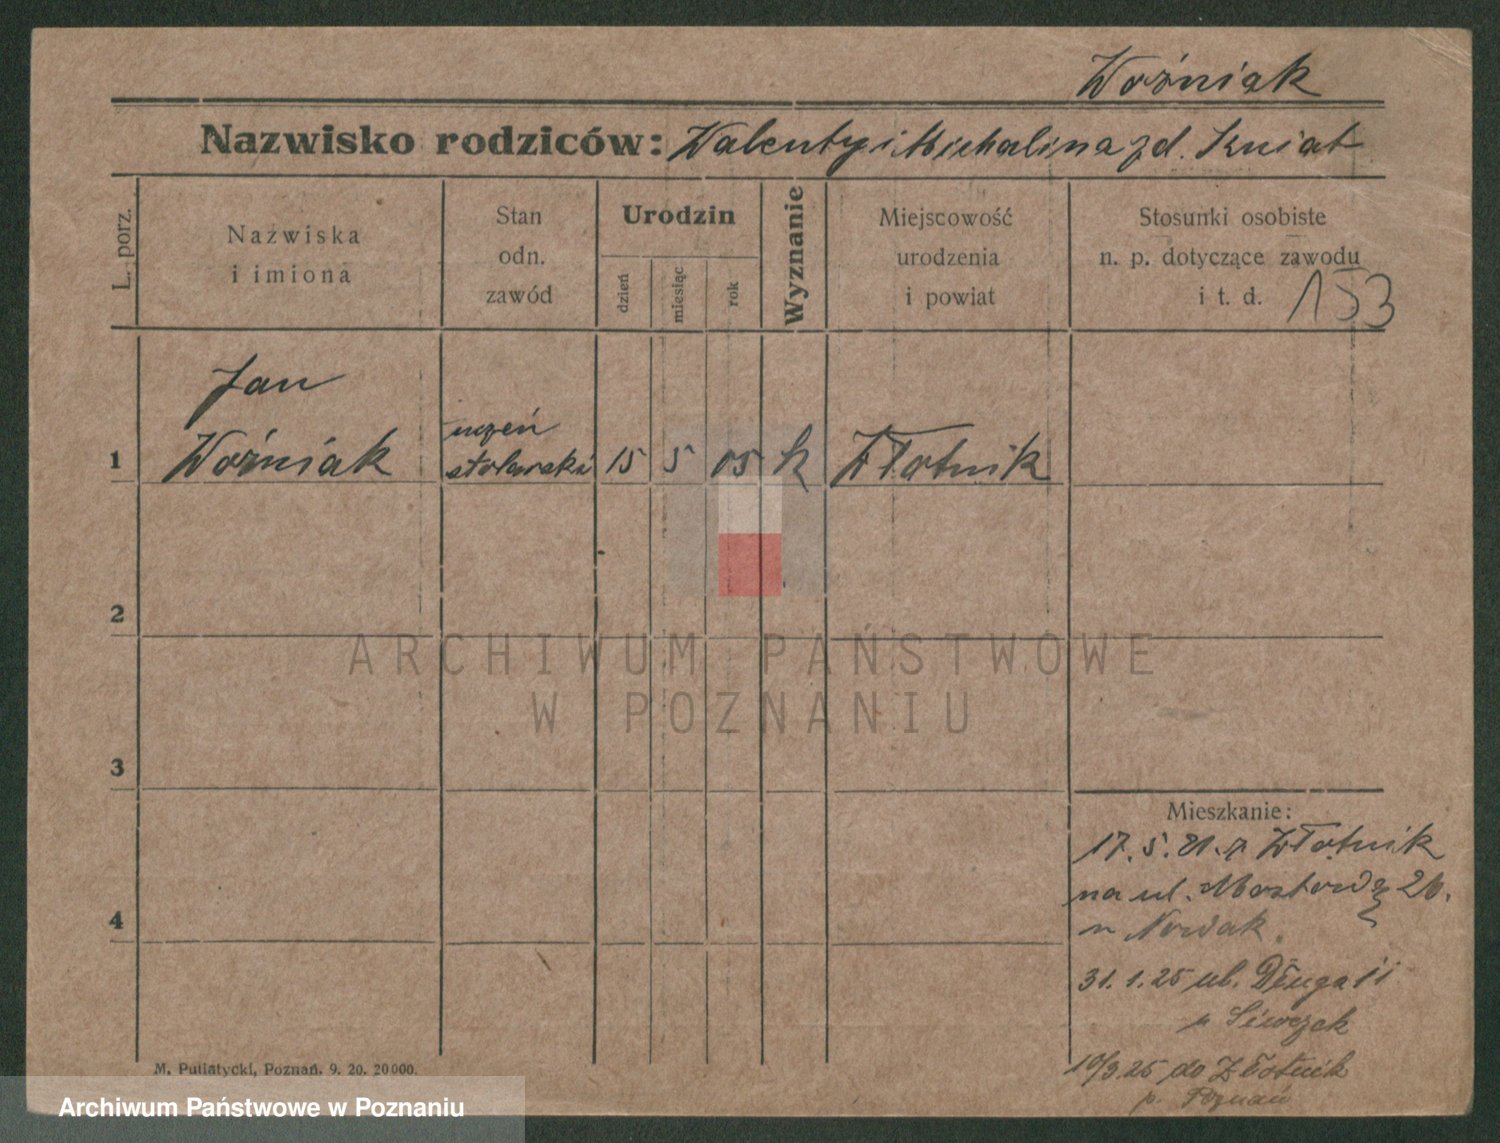 Woźniak
Nazwisko rodziców: Walenty i Michalina zd. Kniat
L. porz.
Nazwiska
i imiona
Stan
odn.
zawód
Urodzin
dzień
miesiąc
rok
Wyznanie
Miejscowość
urodzenia
i powiat
Stosunki osobiste
n. p. dotyczące zawodu
i t. d. 153
Jan
1 Woźniak uczeń stolarski 15 5 05 k Złotnik
2
3
4
Mieszkanie:
17. 5. 21. z Złotnik
na ul. Mostową 26.
u Nowak
31. 1. 25 ul. Długa 11
p Siwczak
10/3 25 do Złotnik
p. Poznań
M. Putiatycki, Poznań. 9. 20. 20000.
ARCHIWUM PAŃSTWOWE
W POZNANIU
Archiwum Państwowe w Poznaniu